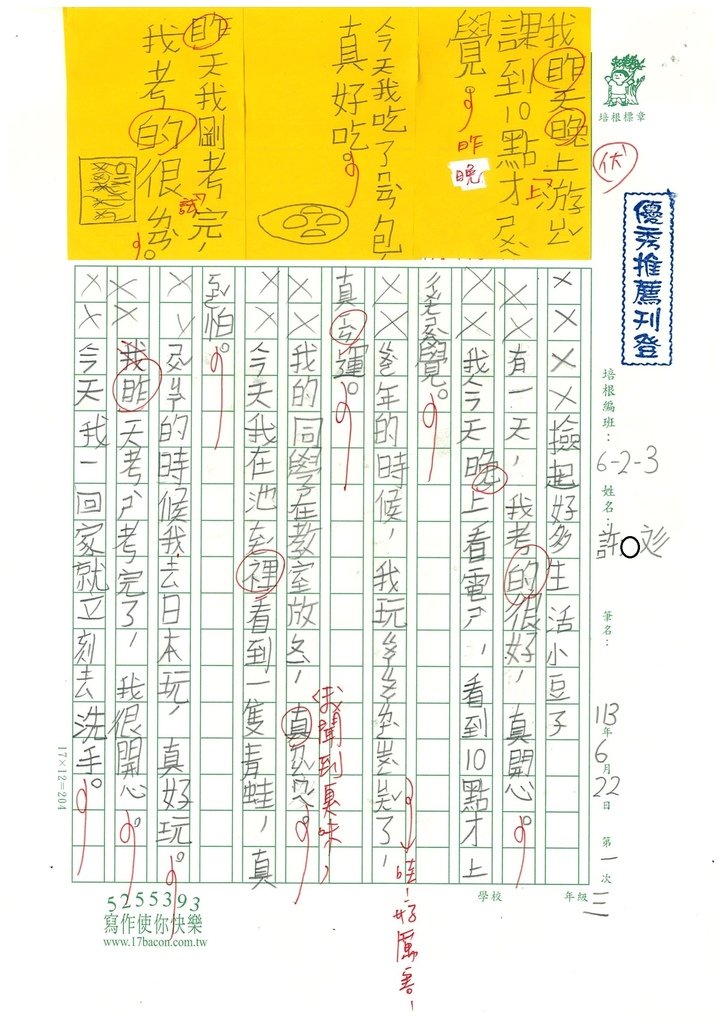 培根標章
伏
優秀推薦刊登
培根編班：6-2-3
姓名：許〇彣
筆名：
113年6月22日
第一次
學校
年級三
我昨天晚上游
課到10點才
覺。
昨
晚
上
今天我吃了包，
真好吃。
昨天我剛考完，
試
我考的很
××××撿起好多生活小豆子
××有一天，我考的很好，真開心。
××我今天晚上看電ㄕ，看到10點才上
覺。
××年的時候，我玩了，
哇！好厲害！
真運。
××我的同學在教室放，真。
我聞到臭味，
××今天我在池裡看到一隻青蛙，真
怕。
××的時候我去日本玩，真好玩。
××我昨天考ㄕ考完了，我很開心。
××今天我一回家就立刻去洗手。
17×12=204
5255393
寫作使你快樂
www.17bacon.com.tw